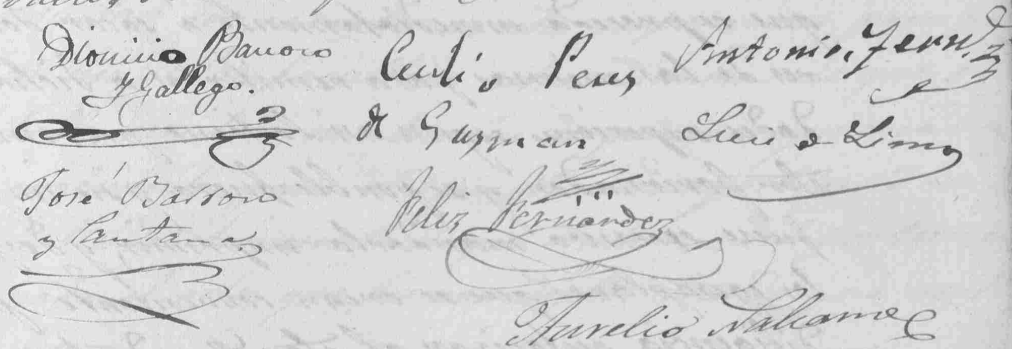 Dionicio Barroso
y Gallego.
José Barroso
y Santana
Perez
de Guzman
Felix Fernandez
Antonio Fernz
Luis de Lima
Aurelio